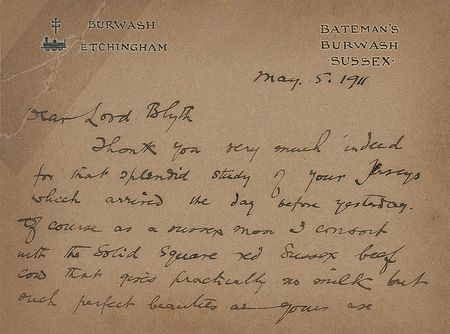 BURWASH
ETCHINGHAM
BATEMAN'S
BURWASH
SUSSEX.
May. 5. 1911
Dear Lord Blyth
Thank you very much indeed
for that splendid study of your Jerseys
which arrived the day before yesterday.
Of course as a Sussex man I consort
with the Solid Square red Sussex beef
cow that gives practically no milk but
such perfect beauties as yours are